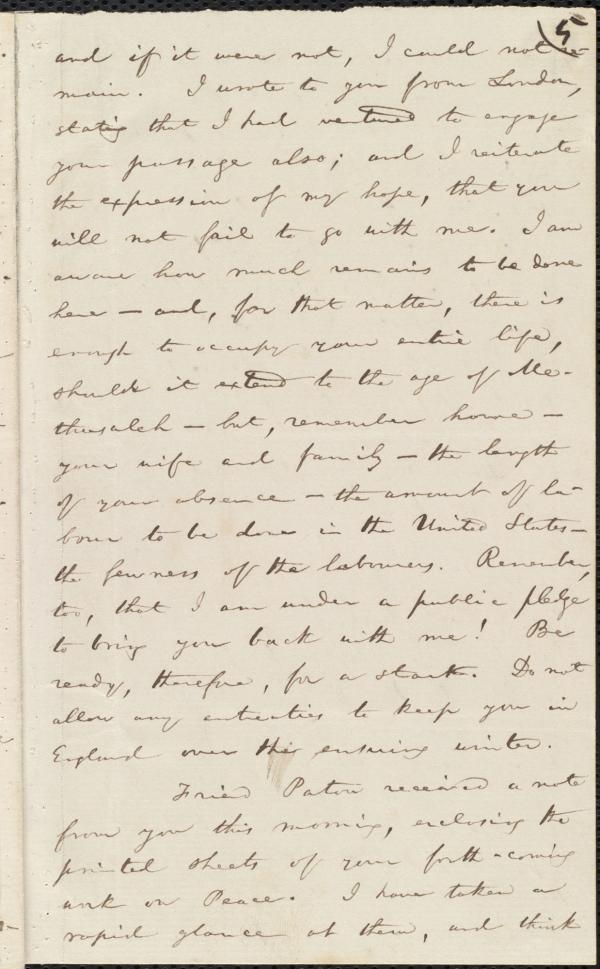 5
and if it were not, I could not re-
main. I wrote to you from London,
stating that I had ventured to engage
your passage also; and I reiterate
the expression of my hope, that you
will not fail to go with me. I am
aware how much remains to be done
here — and, for that matter, there is
enough to occupy your entire life,
should it extend to the age of Me-
thusaleh — but, remember home —
your wife and family — the length
of your absence — the amount of la-
bour to be done in the United States —
the fewness of the labourers. Remember,
too, that I am under a public pledge
to bring you back with me! Be
ready, therefore, for a start. Do not
allow any entreaties to keep you in
England over this ensuing winter.
Friend Paton received a note
from you this morning, enclosing the
printed sheets of your forth-coming
work on Peace. I have taken a
rapid glance at them, and think